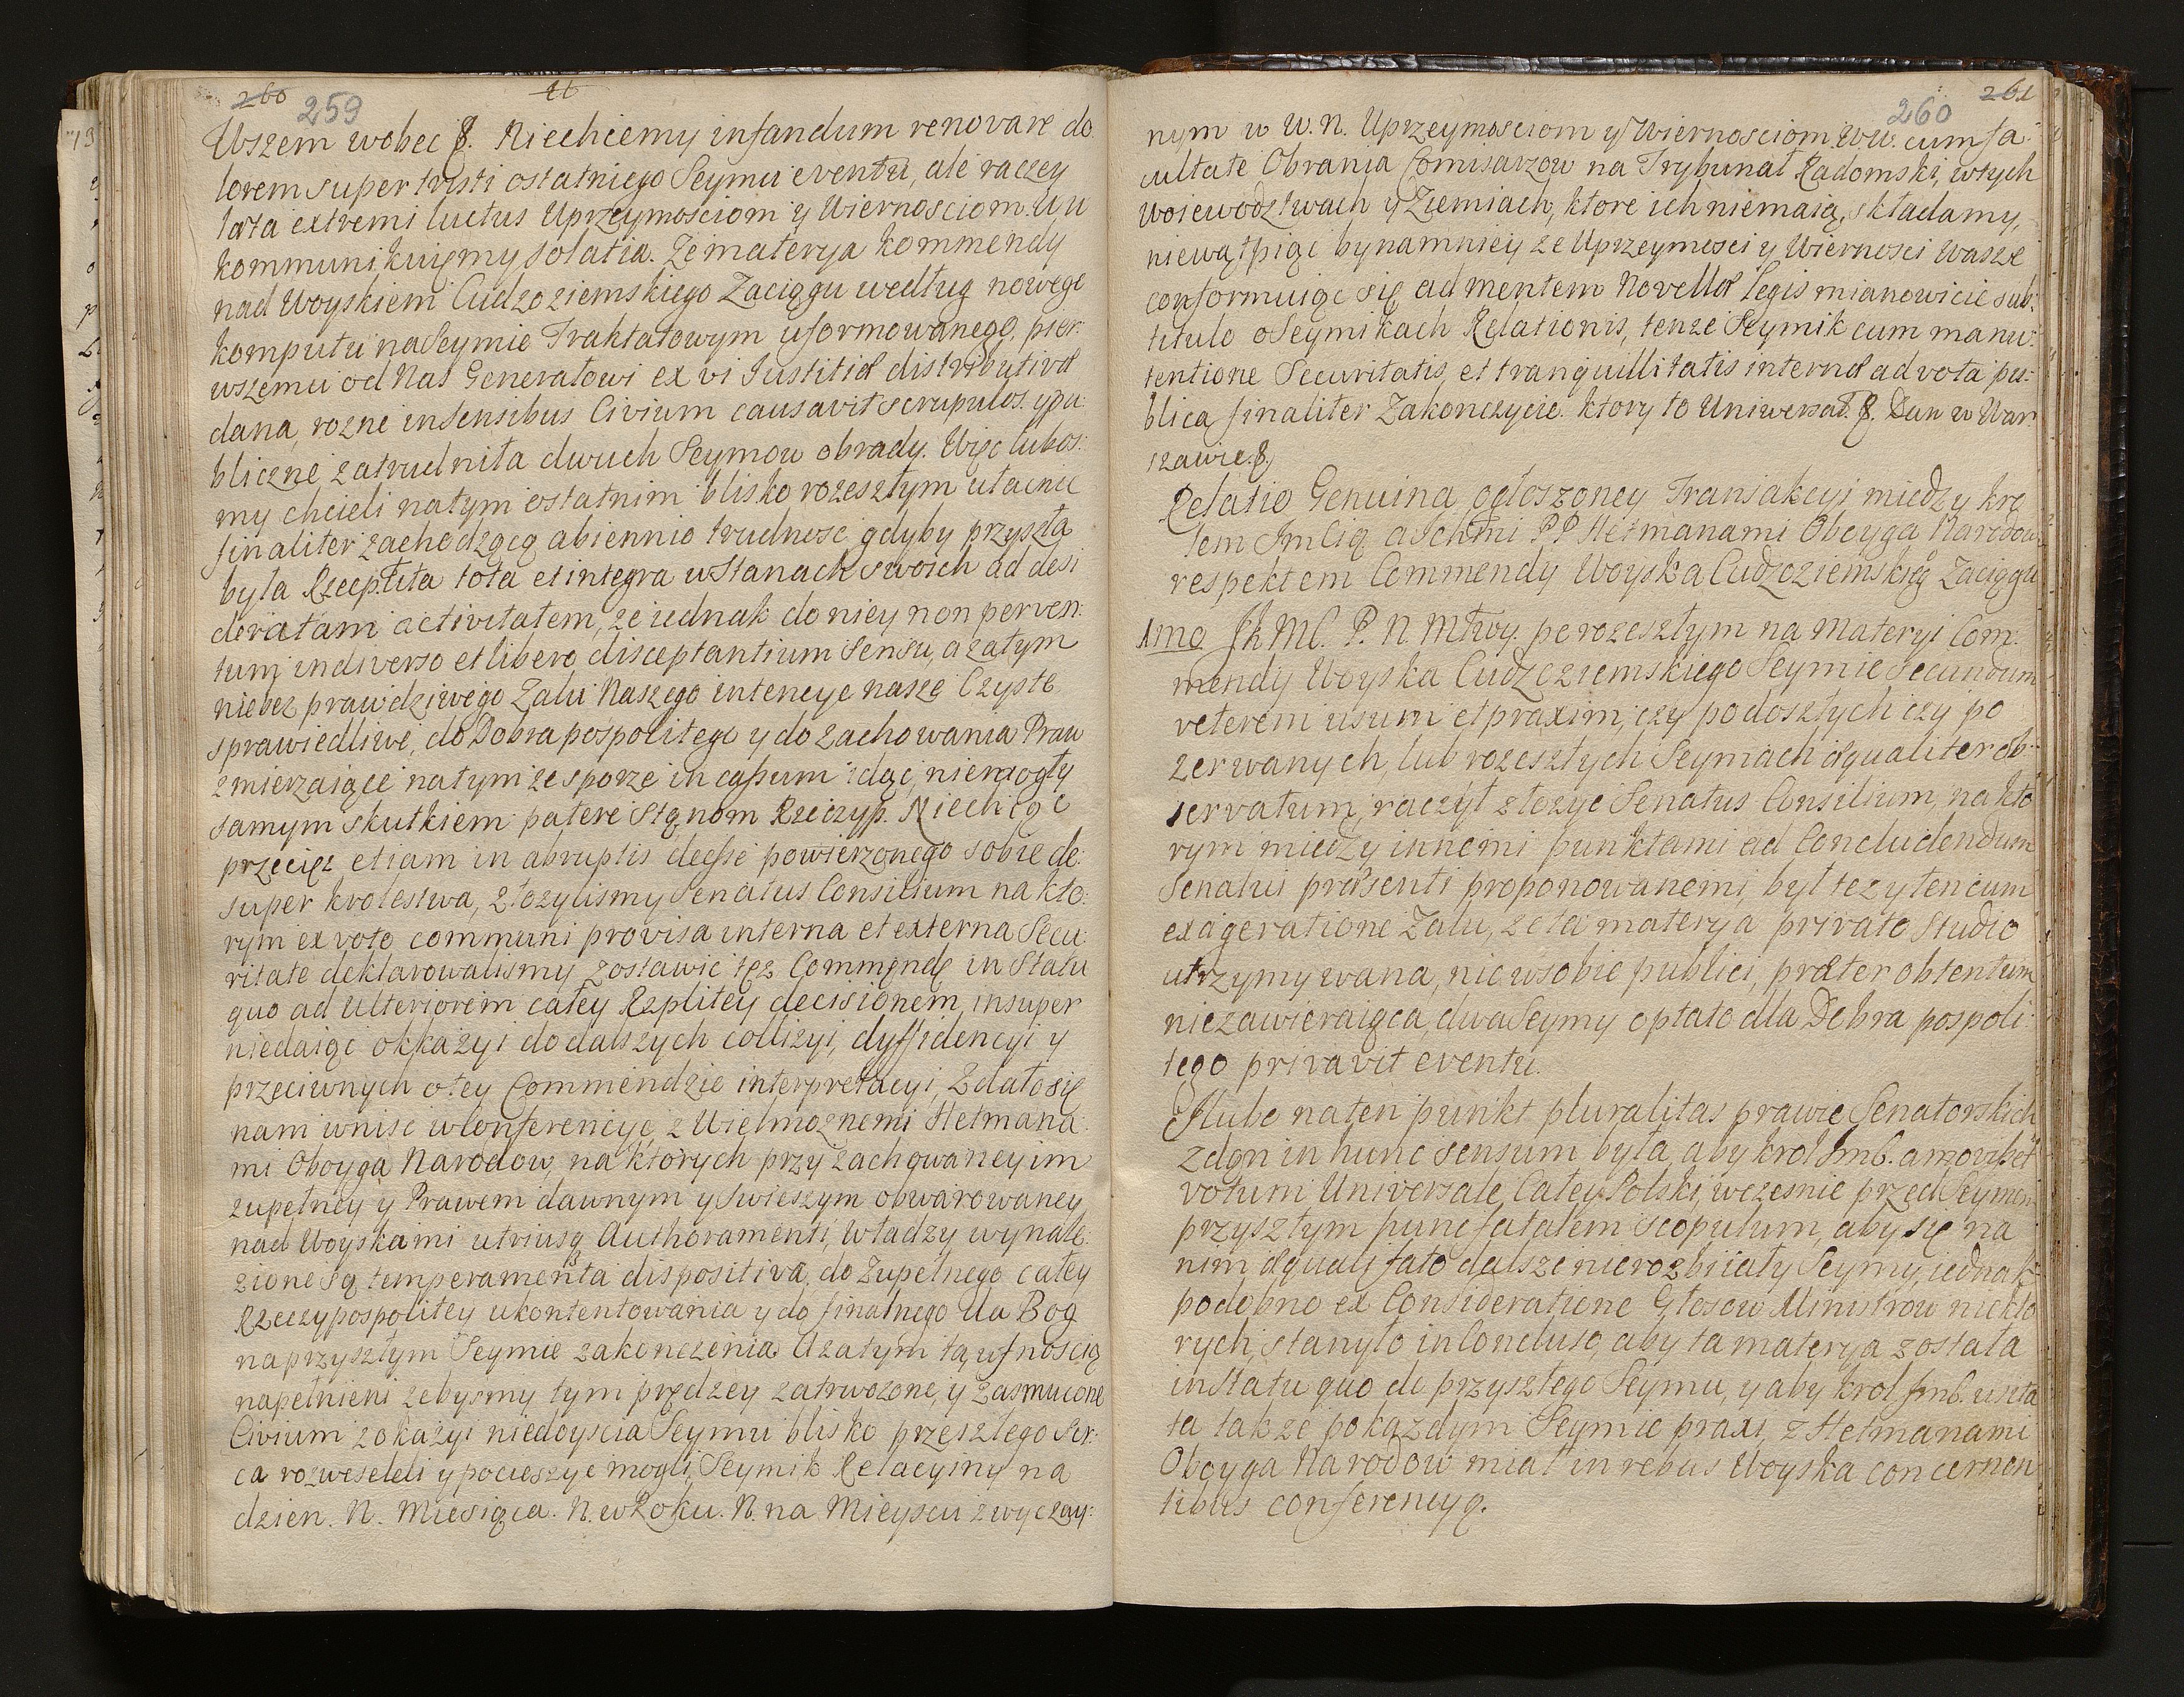 260 259 26
Wszem wobec &. Niechcemy infandum renovare do
lorem super tristi ostatniego Seymu eventu, ale raczey
lata extremi luctus Uprzeymosciom y Wiernosciom W W
kommunikuięmy solatia. Ze materya kommendy
nad Woyskiem Cudzoziemskiego Zaciągu według nowego
komputu na Seymie Traktatowym uformowanego, pier:
wszemu od Nas Generałowi ex vi Iustitiæ distributivæ
dana, rozne in sensibus Civium causavit scrupulos y pu
bliczne zatrudniła dwuch Seymow obrady. Więc lubos:
my chcieli na tym ostatnim blisko rozeszłym ułacnic
finaliter zachodzącą a biennio trudnosc gdyby przyszła
była Rzecp.lita tota et integra w Stanach swoich ad desi
deratam activitatem, ze iednak do niey non perven:
tum in diverso et libero disceptantium sensu, a zatym
nie bez prawdziwego Zalu Naszego intencye nasze Czyste
sprawiedliwe, do Dobra pospolitego y do zachowania Praw
zmierzaiące na tym ze sporze in cassum idąc, niemogły
samym skutkiem patere Stanom Rzeczyp. Niechcąc
przecięz etiam in abruptis deesse powierzonego sobie de:
super krolestwa, złozylismy Senatus Consilium na kto:
rym ex voto communi provisa interna et externa Secu:
ritate deklarowalismy zostawic tęz Commendę in Statu
quo ad Ulteriorem całey Rzplitey decisionem, insuper
niedaiąc okkazyi do dalszych collizyi, dyffidencyi y
przeciwnych o tey Commendzie interpretacyi, Zdało się
nam wniśc w Conferencyę z Wielmoznemi Hetmana:
mi Oboyga Narodow, na ktorych przy zachowaney im
zupełney y Prawem dawnym y swieszym obwarowaney
nad Woyskami utriusq Authoramenti, Władzy wynale:
zione są temperamenta dispositiva, do Zupełnego całey
Rzeczypospolitey ukontentowania y do finalnego da Bog
na przyszłym Seymie zakonczenia. A zatym tą ufnoscią
napełnieni zebysmy tym prędzey zatrwozone, y zasmucone
Civium z okazyi niedoyscia Seymu blisko przeszłego Ser:
ca rozweselili y pocieszyc mogli, Seymik Relacyiny na
dzien. N. Miesiąca. N. w Roku. N. na Mieyscu zwyczay:
260 261
nym w W. N. Uprzeymosciom y Wiernosciom W W. cum fa:
cultate Obrania Comisarzow na Trybunał Radomski, w tych
woiewodztwach y Ziemiach, ktore ich niemaią, składamy,
niewątpiąc bynamniey ze Uprzeymosci y Wiernosci Wasze
conformuiąc się ad mentem Novellæ Legis mianowicie sub:
titulo o Seymikach Relationis, tenze Seymik cum manu:
tentione Securitatis, et tranquillitatis internæ ad vota pu:
blica finaliter Zakonczycie. ktory to Uniwersał. &. Dan w War
szawie. &.
Relatio Genuina ogłoszoney Transakcyi między kro
lem Jm Cią a Jchmi PP Hetmanami Oboyga Narodow
respektem Commendy Woyska Cudzoziemskieg Zaciągu
1mo Jk MC. P. N. Młwy. po rozeszłym na Materyi Com:
mendy Woyska Cudzoziemskiego Seymie secundum
veterem usum et praxim, czy po doszłych czy po
zerwanych, lub rozeszłych Seymach æqualiter ob:
servatum, raczył złozyc Senatus Consilium, na kto
rym między innemi punktami ad Concludendum
Senatui præsenti proponowanemi, był tez y ten cum
exageratione Zalu, ze ta materya privato studio
utrzymywana, nic w sobie publici, præter obtentum
niezawieraiąca, dwa Seymy optato dla Dobra pospoli:
tego privavit eventu.
J lubo na ten punkt pluralitas prawie Senatorskich
zdań in hunc sensum była, aby krol Jmć. amoveret
votum Universale Całey Polski, wczesnie przed Seymem
przyszłym hunc fatalem scopulum, aby się na
nim æquali fato dalsze nierozbiiały Seymy, iednak
podobno ex Consideratione Głosow Ministrow niekto
rych, stanyło in Concluso, aby ta materya została
in Statu quo do przyszłego Seymu, y aby krol Jmć. uzta
ta także po kazdym Seymie praxi, z Hetmanami
Oboyga Narodow miał in rebus Woyska concernen
tibus conferencyą.